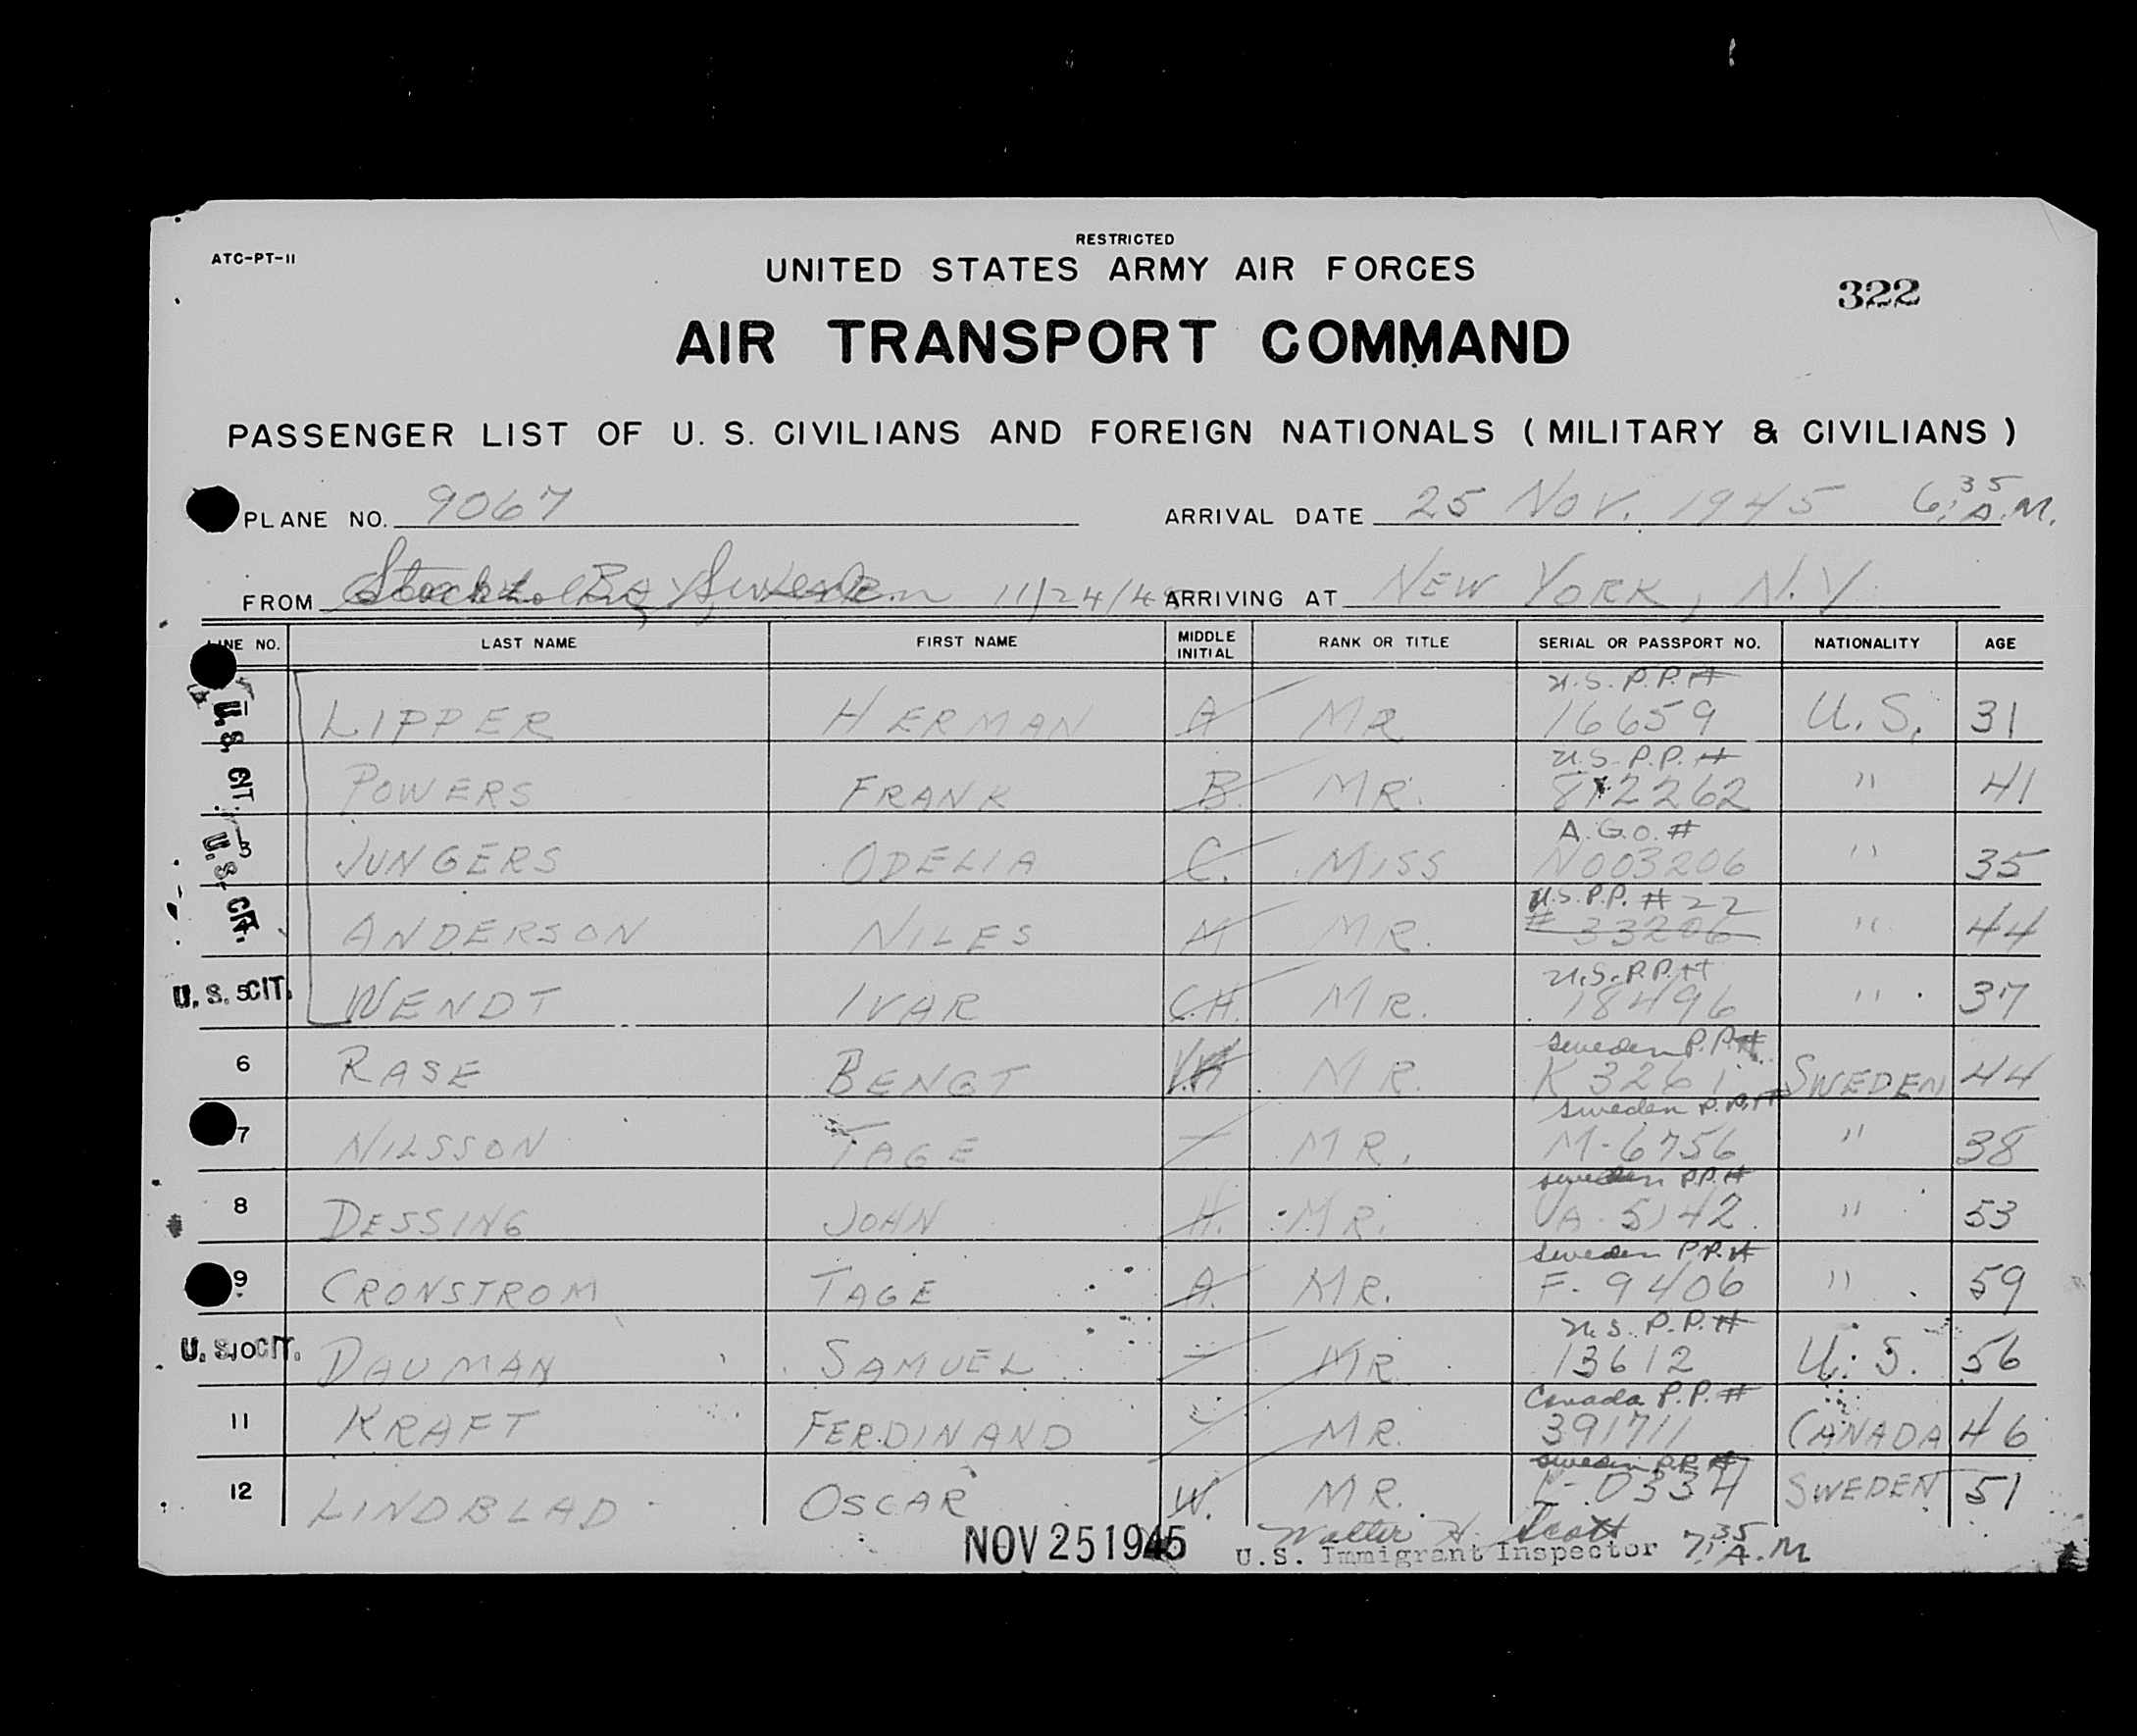 RESTRICTED
ATC-PT-11
UNITED STATES ARMY AIR FORCES
322
AIR TRANSPORT COMMAND
PASSENGER LIST OF U. S. CIVILIANS AND FOREIGN NATIONALS ( MILITARY & CIVILIANS )
PLANE NO. 9067 ARRIVAL DATE 25 NOV. 1945 6:35 A.M.
FROM Stockholm, Sweden 11/24/45 ARRIVING AT NEW YORK, N.Y.
LINE NO. LAST NAME FIRST NAME MIDDLE INITIAL RANK OR TITLE SERIAL OR PASSPORT NO. NATIONALITY AGE
U.S. P.P. #
U.S. CIT. LIPPER HERMAN A MR 16659 U.S. 31
U.S. P.P. #
POWERS FRANK B. MR. 812262 " 41
A.G.O. #
3 U.S. CIT. JUNGERS ODELIA C. MISS N003206 " 35
U.S. P.P. # 22
ANDERSON NILES M MR. # 33206 " 44
U.S. P.P. #
U. S. 5 CIT. WENDT IVAR C.H. MR. 18496 " 37
Sweden P.P. #
6 RASE BENGT MR. K 3261 SWEDEN 44
Sweden P.P. #
7 NILSSON TAGE – MR. M-6756 " 38
Sweden P.P. #
8 DESSING JOHN H. MR. UA 5142 " 53
Sweden P.P. #
9 CRONSTROM TAGE A. MR. F-9406 " 59
U.S. P.P. #
U. S. 10 CIT. DAUMAN SAMUEL – MR 13612 U.S. 56
Canada P.P. #
11 KRAFT FERDINAND – MR. 391711 CANADA 46
Sweden P.P. #
12 LINDBLAD OSCAR W. MR. 0334 SWEDEN 51
NOV 25 1945 Walter H. Scott
U.S. Immigrant Inspector 7:35 A.M